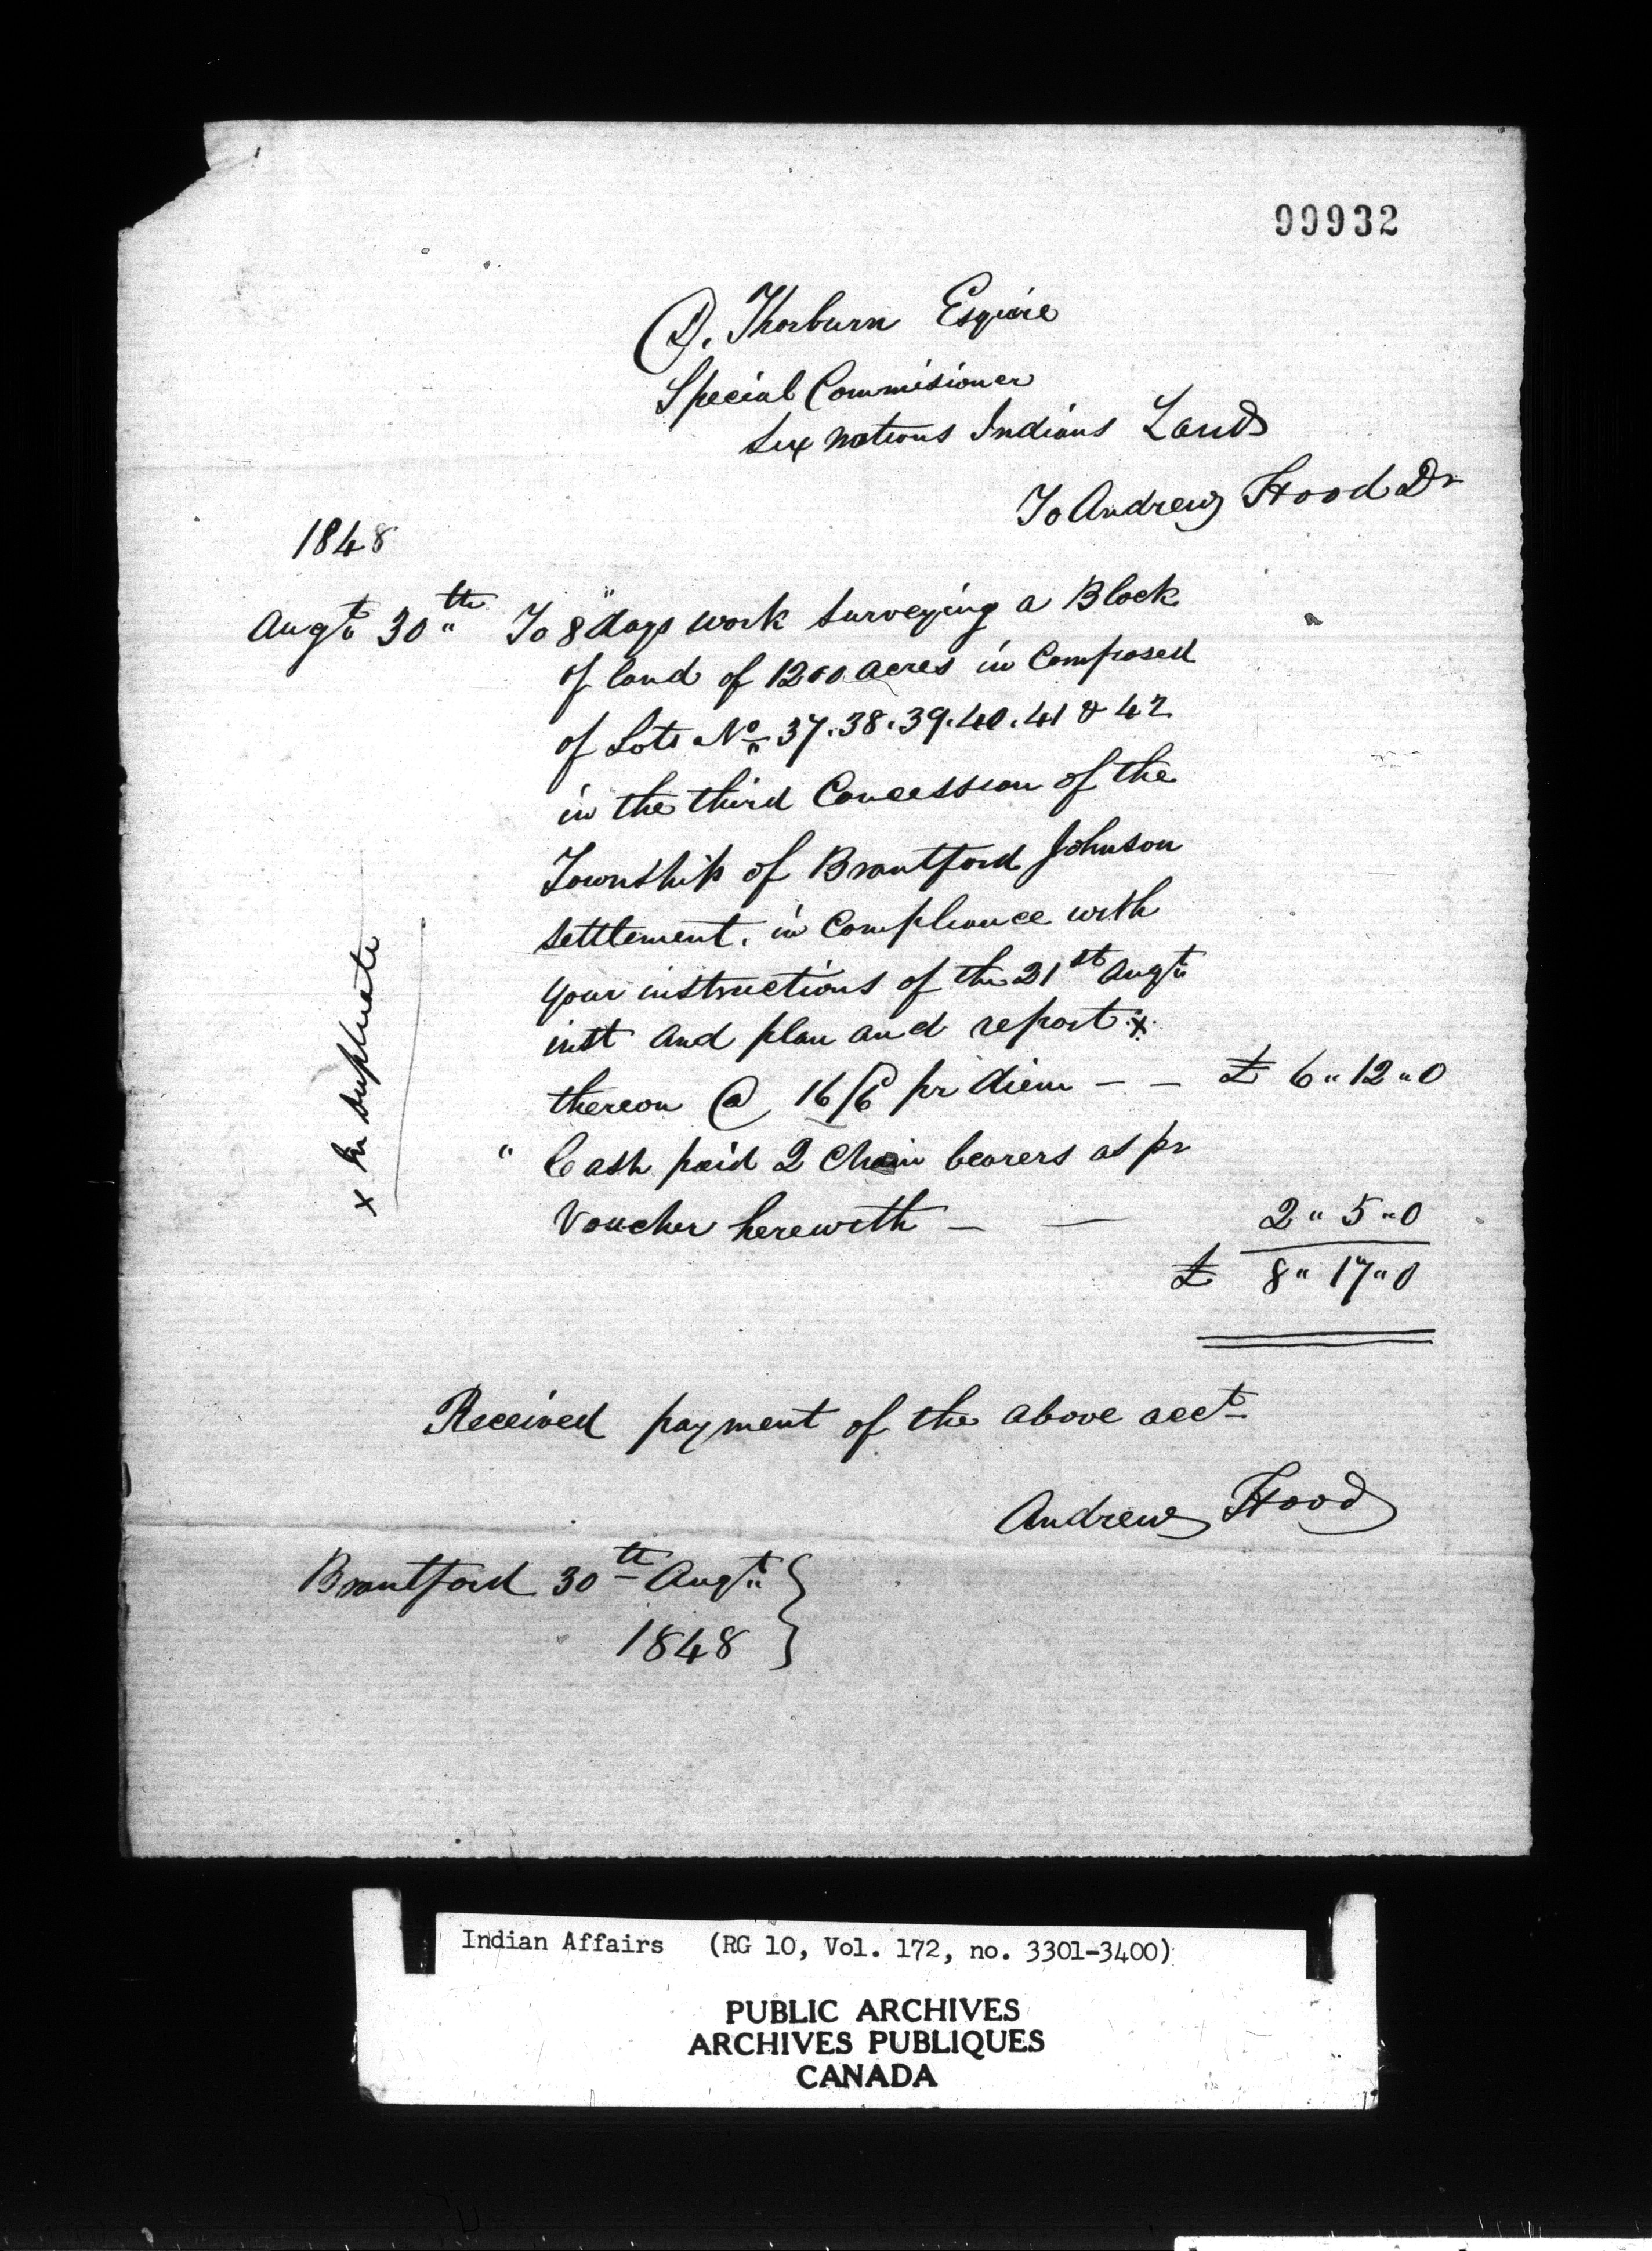 99932
D. Thorburn Esquire
Special Commisioner
Six nations Indians Lands
To Andrew Hood Dr
1848
Augt 30th To 8 days work surveying a Block
of land of 1200 acres in Composed
of Lots No 37.38.39.40.41 & 42
in the third Concession of the
Township of Brantford Johnson
settlement. in Compliance with
your instructions of the 21st Augt
inst and plan and report x
thereon @ 16/6 pr diem – – £ 6 " 12 " 0
" Cash paid 2 Chain bearers as pr
Voucher herewith – — 2 " 5 " 0
£ 8 " 17 " 0
x in duplicate
Received payment of the above acct
Andrew Hood
Brantford 30th Augt }
1848
Indian Affairs (RG 10, Vol. 172, no. 3301-3400)
PUBLIC ARCHIVES
ARCHIVES PUBLIQUES
CANADA